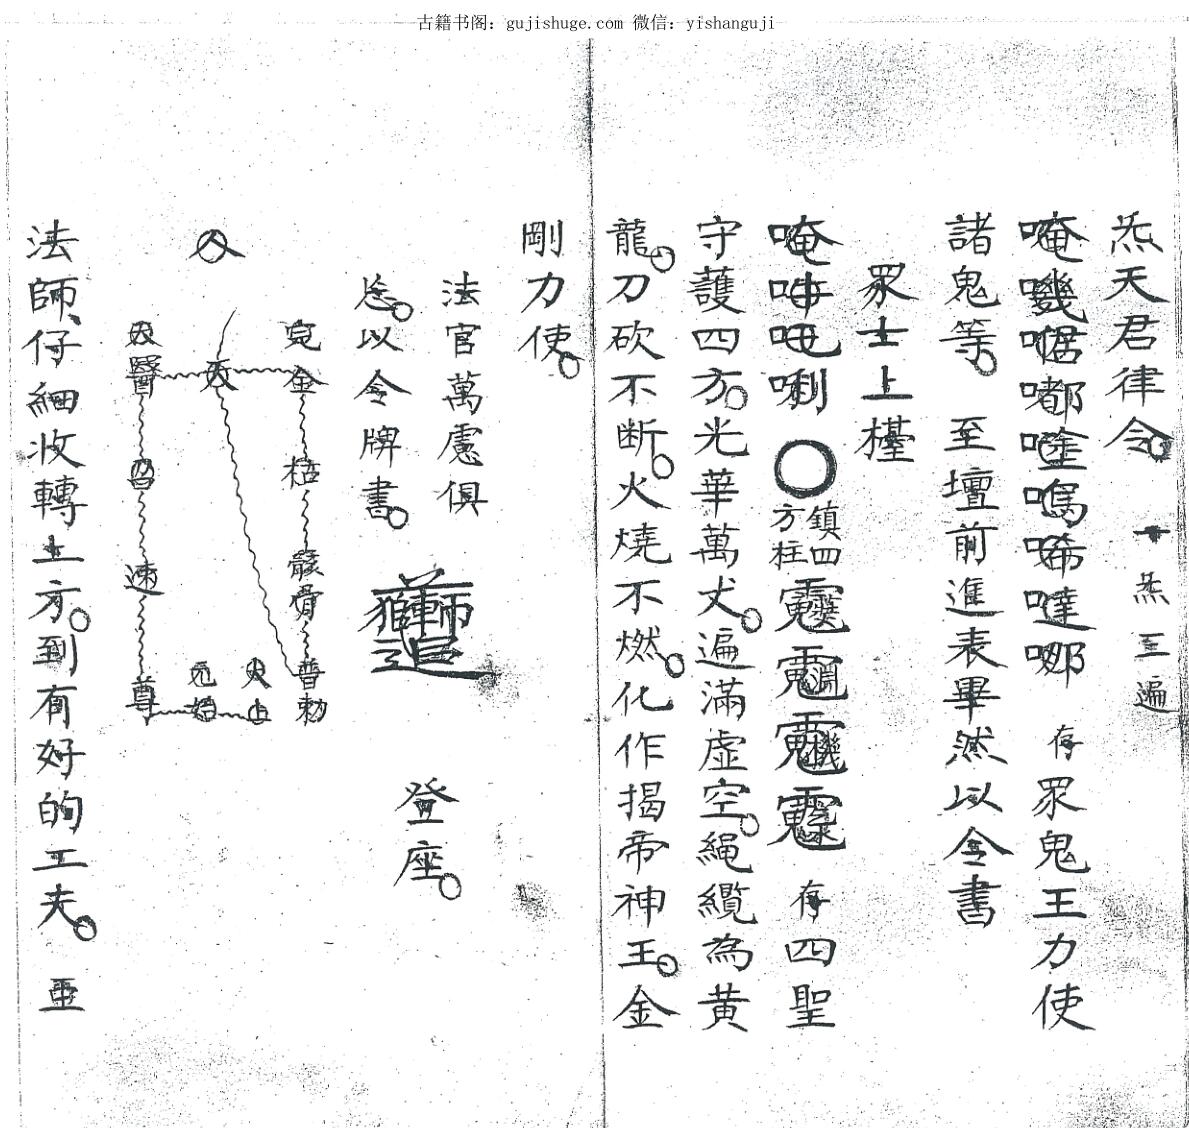 古籍书阁: gujishuge.com 微信: yishanguji
炁天君律令。 十炁三遍
唵嘰㗕嘟嚏嗎唏噠哪 存眾鬼王力使
諸鬼等。 至壇前進表畢然以令書
眾士上檯
唵吽吒唎 鎮四方柱 存四聖
守護四方。光華萬丈。遍滿虛空。繩纜為黃
龍。刀砍不断。火燒不燃。化作揭帝神王。金
剛力使。
法官萬慮俱
忘。以令牌書。 登座。
完金 骸骨普勅
天 火上
元始
天醫 召速尊
法師、仔細收轉土方。到有好的工夫。